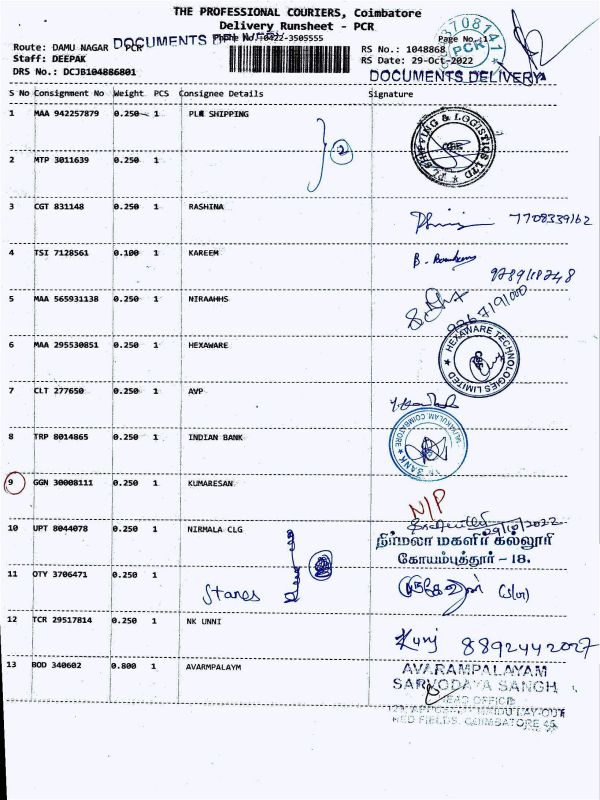 THE PROFESSIONAL COURIERS, Coimbatore
Delivery Runsheet - PCR
Phone No :0422-3505555
Page No.:1
Route: DAMU NAGAR - PCR
DOCUMENTS DELIVERY
RS No.: 1048868
Staff: DEEPAK
RS Date: 29-Oct-2022
DRS No.: DCJB104886801
DOCUMENTS DELIVERY
3708141
PCR
S No Consignment No Weight PCS Consignee Details Signature
1 MAA 942257879 0.250 1 PLW SHIPPING
SHIPPING & LOGISTICS LTD
2 MTP 3011639 0.250 1
2
3 CGT 831148 0.250 1 RASHINA
7708339162
4 TSI 7128561 0.100 1 KAREEM
5 MAA 565931138 0.250 1 NIRAAHHS
6 MAA 295530851 0.250 1 HEXAWARE
HEXAWARE TECHNOLOGIES LIMITED
CBE
7 CLT 277650 0.250 1 AVP
8 TRP 8014865 0.250 1 INDIAN BANK
BANK
COIMBATORE
9 GGN 30008111 0.250 1 KUMARESAN
N/P
10 UPT 8044078 0.250 1 NIRMALA CLG
29/10/2022
நிர்மலா மகளிர் கல்லூரி
கோயம்புத்தூர் - 18.
11 OTY 3706471 0.250 1
Stanes
12 TCR 29517814 0.250 1 NK UNNI
8892442027
13 BOD 340602 0.800 1 AVARMPALAYM
AVARAMPALAYAM
SARVODAYA SANGH
HEAD OFFICE
RED FIELDS, COIMBATORE 45